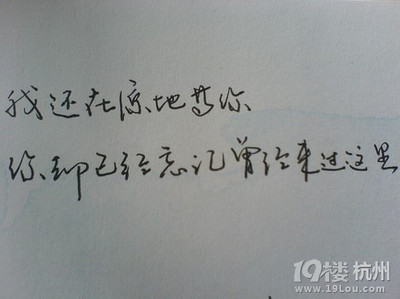 我还在原地等你
你却已经忘记曾经来过这里
19楼杭州
www.19Lou.com